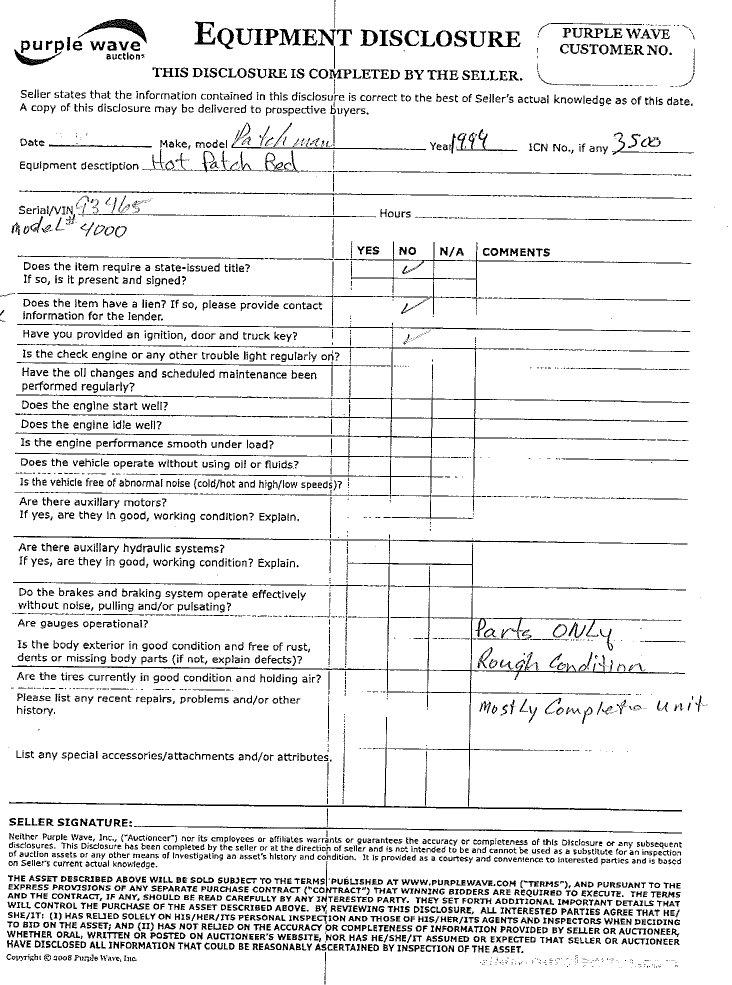 purple wave
auction®
EQUIPMENT DISCLOSURE
PURPLE WAVE
CUSTOMER NO.
THIS DISCLOSURE IS COMPLETED BY THE SELLER.
Seller states that the information contained in this disclosure is correct to the best of Seller's actual knowledge as of this date.
A copy of this disclosure may be delivered to prospective buyers.
Date Make, model Patchman Year 1994 ICN No., if any 3500
Equipment desctiption Hot Patch Red
Serial/VIN 93465 Hours
Model# 4000
YES NO N/A COMMENTS
Does the item require a state-issued title? ✓
If so, is it present and signed?
Does the item have a lien? If so, please provide contact ✓
information for the lender.
Have you provided an ignition, door and truck key? ✓
Is the check engine or any other trouble light regularly on?
Have the oil changes and scheduled maintenance been
performed regularly?
Does the engine start well?
Does the engine idle well?
Is the engine performance smooth under load?
Does the vehicle operate without using oil or fluids?
Is the vehicle free of abnormal noise (cold/hot and high/low speeds)?
Are there auxiliary motors?
If yes, are they in good, working condition? Explain.
Are there auxiliary hydraulic systems?
If yes, are they in good, working condition? Explain.
Do the brakes and braking system operate effectively
without noise, pulling and/or pulsating?
Are gauges operational? Parts ONLY
Is the body exterior in good condition and free of rust,
dents or missing body parts (if not, explain defects)? Rough Condition
Are the tires currently in good condition and holding air?
Please list any recent repairs, problems and/or other Mostly Complete Unit
history.
List any special accessories/attachments and/or attributes.
SELLER SIGNATURE:
Neither Purple Wave, Inc., ("Auctioneer") nor its employees or affiliates warrants or guarantees the accuracy or completeness of this Disclosure or any subsequent
disclosures. This Disclosure has been completed by the seller or at the direction of seller and is not intended to be and cannot be used as a substitute for an inspection
of auction assets or any other means of investigating an asset's history and condition. It is provided as a courtesy and convenience to interested parties and is based
on Seller's current actual knowledge.
THE ASSET DESCRIBED ABOVE WILL BE SOLD SUBJECT TO THE TERMS PUBLISHED AT WWW.PURPLEWAVE.COM ("TERMS"), AND PURSUANT TO THE
EXPRESS PROVISIONS OF ANY SEPARATE PURCHASE CONTRACT ("CONTRACT") THAT WINNING BIDDERS ARE REQUIRED TO EXECUTE. THE TERMS
AND THE CONTRACT, IF ANY, SHOULD BE READ CAREFULLY BY ANY INTERESTED PARTY. THEY SET FORTH ADDITIONAL IMPORTANT DETAILS THAT
WILL CONTROL THE PURCHASE OF THE ASSET DESCRIBED ABOVE. BY REVIEWING THIS DISCLOSURE, ALL INTERESTED PARTIES AGREE THAT HE/
SHE/IT: (I) HAS RELIED SOLELY ON HIS/HER/ITS PERSONAL INSPECTION AND THOSE OF HIS/HER/ITS AGENTS AND INSPECTORS WHEN DECIDING
TO BID ON THE ASSET; AND (II) HAS NOT RELIED ON THE ACCURACY OR COMPLETENESS OF INFORMATION PROVIDED BY SELLER OR AUCTIONEER,
WHETHER ORAL, WRITTEN OR POSTED ON AUCTIONEER'S WEBSITE, NOR HAS HE/SHE/IT ASSUMED OR EXPECTED THAT SELLER OR AUCTIONEER
HAVE DISCLOSED ALL INFORMATION THAT COULD BE REASONABLY ASCERTAINED BY INSPECTION OF THE ASSET.
Copyright © 2008 Purple Wave, Inc.